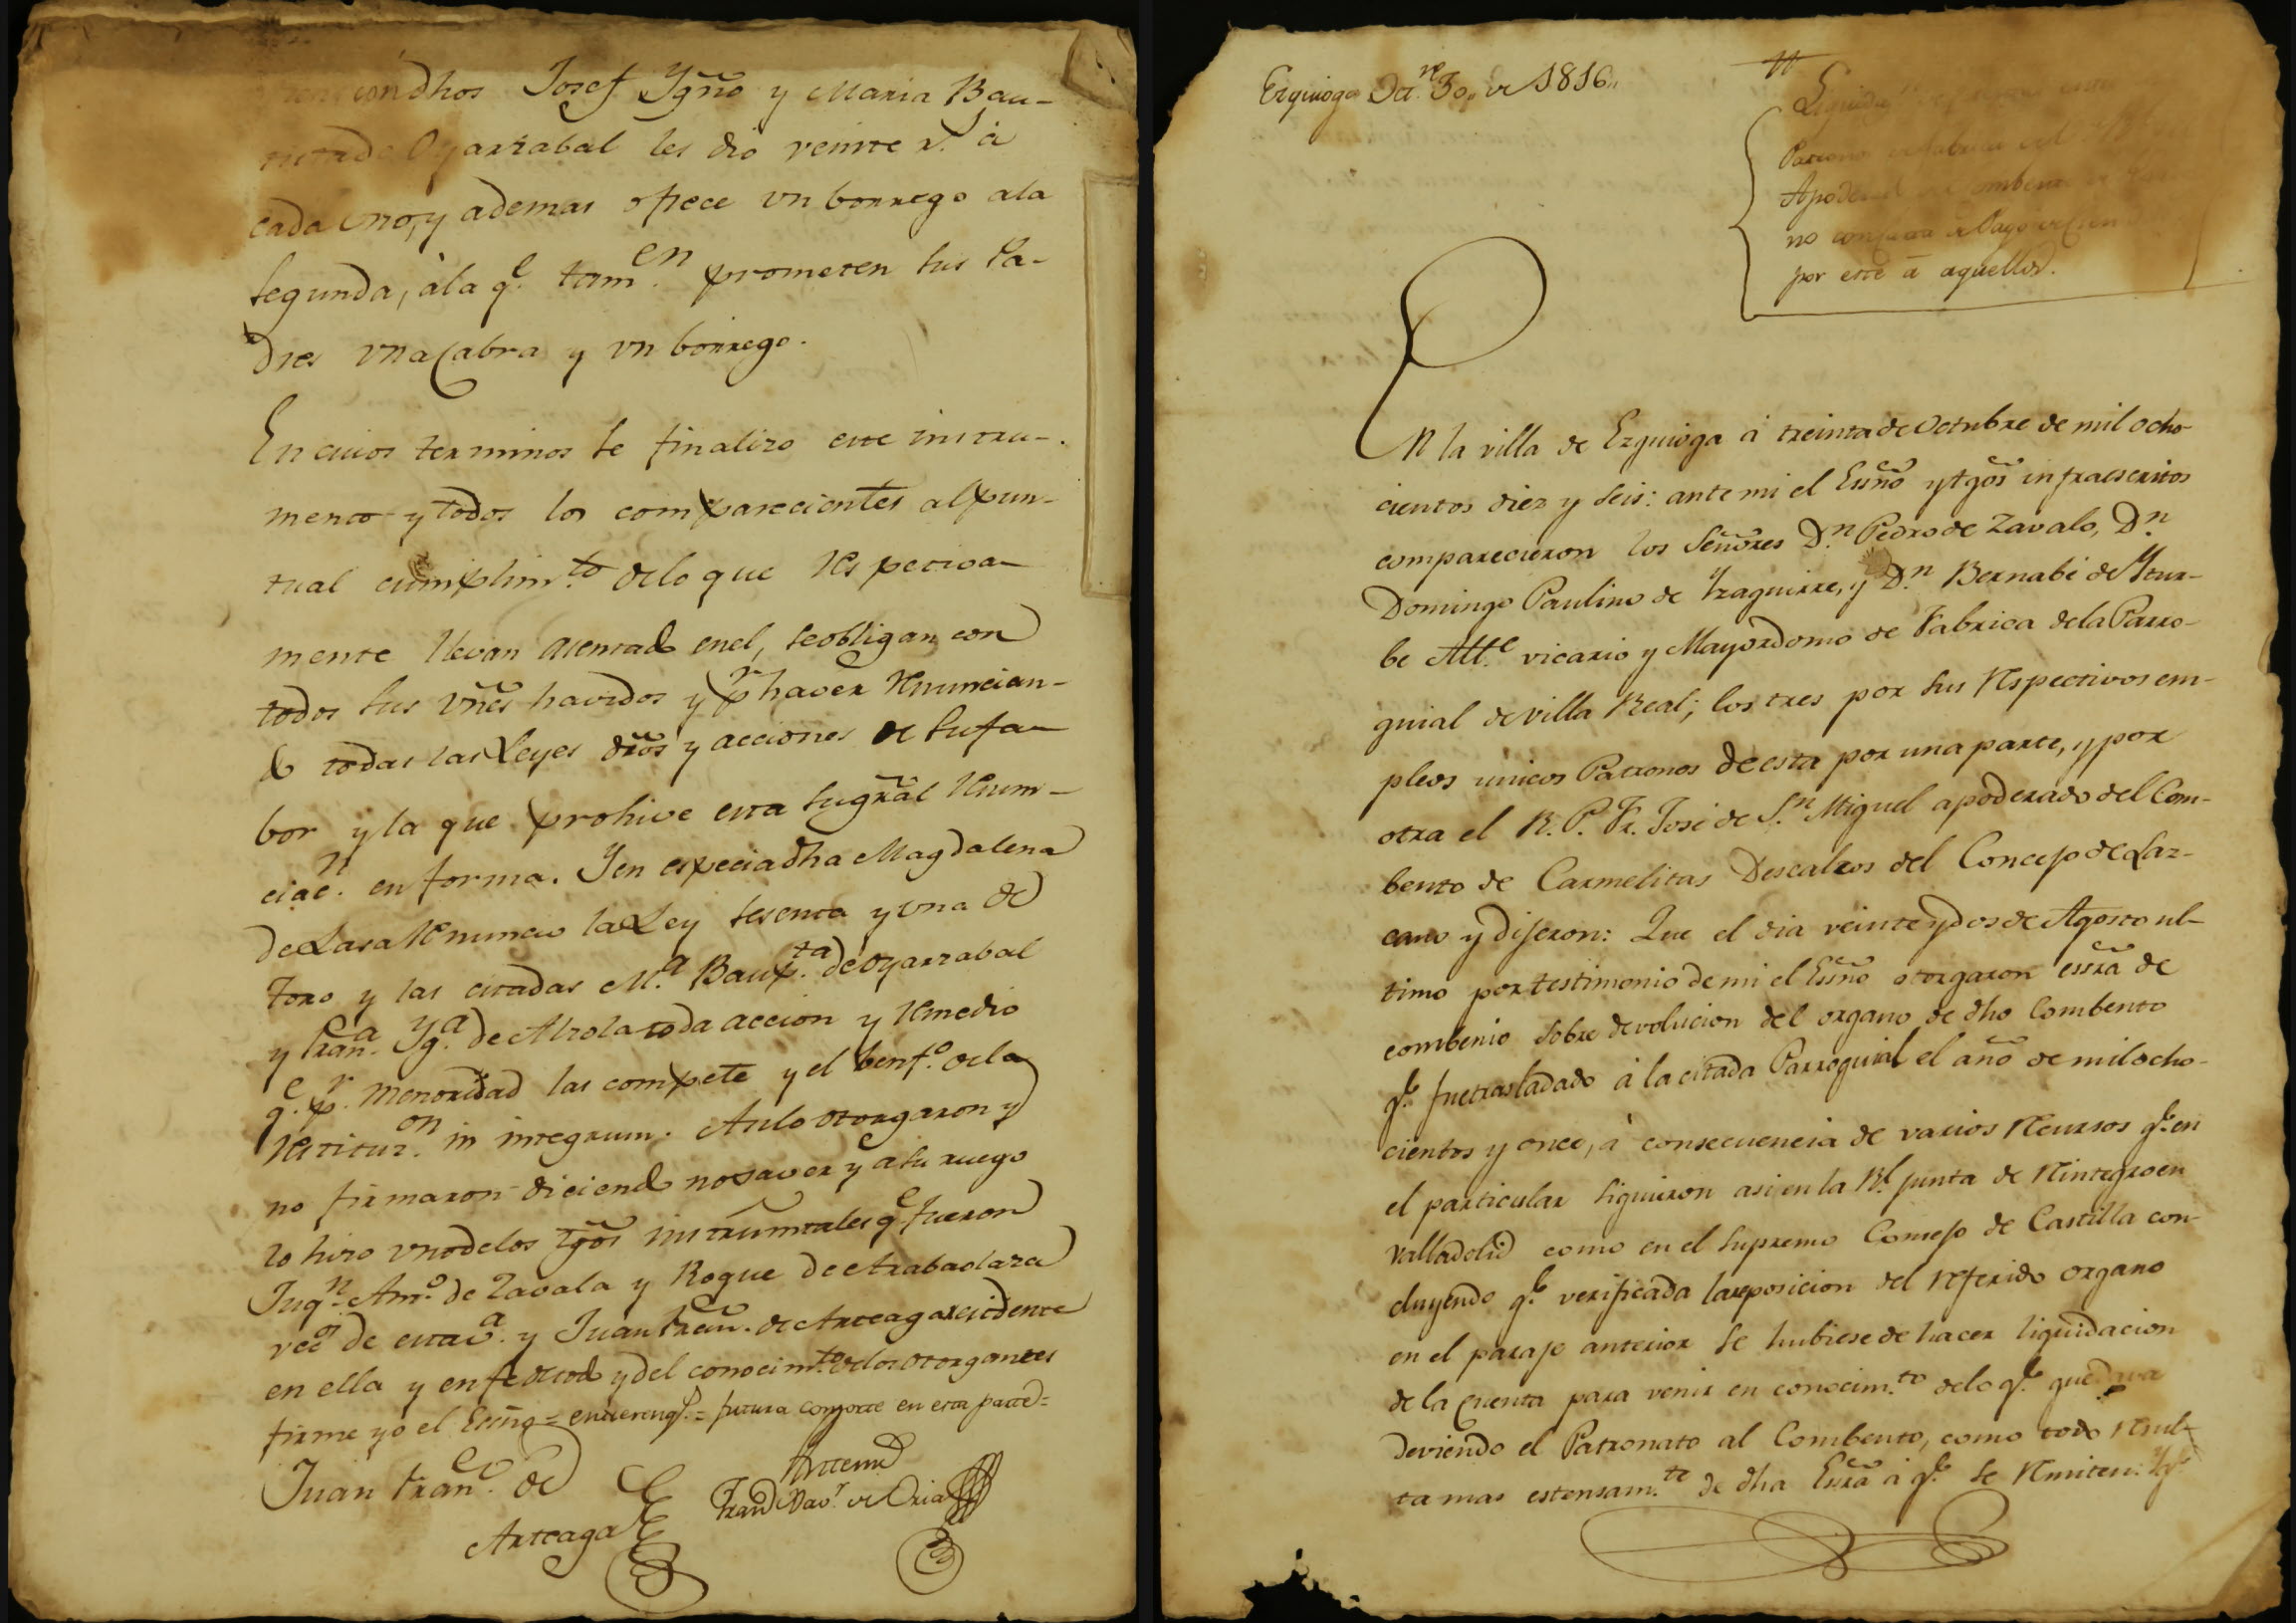 condhos Josef Ygño y Maria Bau-
de Oyarzabal les dio veinte r.s à
cada uno, y ademas ofrece vn borrego ala
segunda, àla q.e tam.en prometen sus Pa-
dres vna Cabra y vn borrego.
En cuios terminos se finalizo este instru-
mento y todos los comparecientes al pun-
tual cumplim.to delo que respectiva-
mente llevan asentado enel, se obligan con
todos sus vñes havidos y p.r haver renuncian-
do todas las Leyes dr̃os y acciones de su fa-
bor y la que prohive esta su gr̃al renun-
ciac.n en forma. Y en especial dha Magdalena
de Lasa renuncio la Ley sesenta y una de
Toro y las citadas M.a Baup.ta de oyarzabal
y Fran.a Yg.a de Alzola toda accion y remedio
q.e p.r menoridad las compete y el benf.o dela
restituz.on in integrum. Asilo otorgaron y
no firmaron diciendo no saver y a su ruego
lo hizo vno delos tgõs instrumtales q.e fueron
Juq.n Ant.o de Zavala y Roque de Arabaolaza
vec.os de esta v.a y Juan Fran.co de Arteaga residente
en ella y en fe de todo y del conocim.to delos otorgantes
firme yo el Essño = entrereng.s = futura consorte en esta parte =
Juan Fran.co de
Arteaga
Antemi
Fran.co Xav.r de Oria
Ezquioga Oct.re 30,, de 1816,,
Patronos de fabrica del
Apoderado del combento
no
por este à aquellos.
En la villa de Ezquioga à treinta de Octubre de mil ocho
cientos diez y seis: ante mi el Essño y tgõs infraescritos
comparecieron los Señores D.n Pedro de Zavalo, D.n
Domingo Paulino de Yzaguirre, y D.n Bernabé de Ytur-
be Alt.e vicario y Mayordomo de Fabrica dela Parro-
quial de villa Real; los tres por sus respectivos em-
pleos unicos Patronos de esta por una parte, y por
otra el R. P. Fr. José de S.n Miguel apoderado del Com-
bento de Carmelitas Descalzos del Concejo de Laz-
cano y dijeron: Que el dia veinte y dos de Agosto ul-
timo por testimonio de mi el Essño otorgaron essra de
combenio sobre devolucion del organo de dho Combento
q.e fue trasladado à la citada Parroquial el año de mil ocho-
cientos y once, à consecuencia de varios recursos q.e en
el particular siguieron asi en la R.l junta de reintegro en
Valladolid como en el supremo Consejo de Castilla con-
cluyendo q.e verificada la reposicion del referido organo
en el paraje anterior se hubiese de hacer liquidacion
de la cuenta para venir en conocim.to delo q.e quedava
deviendo el Patronato al Combento, como todo resul-
ta mas estensam.te de dha Essra à q.e se remiten: Y q.e